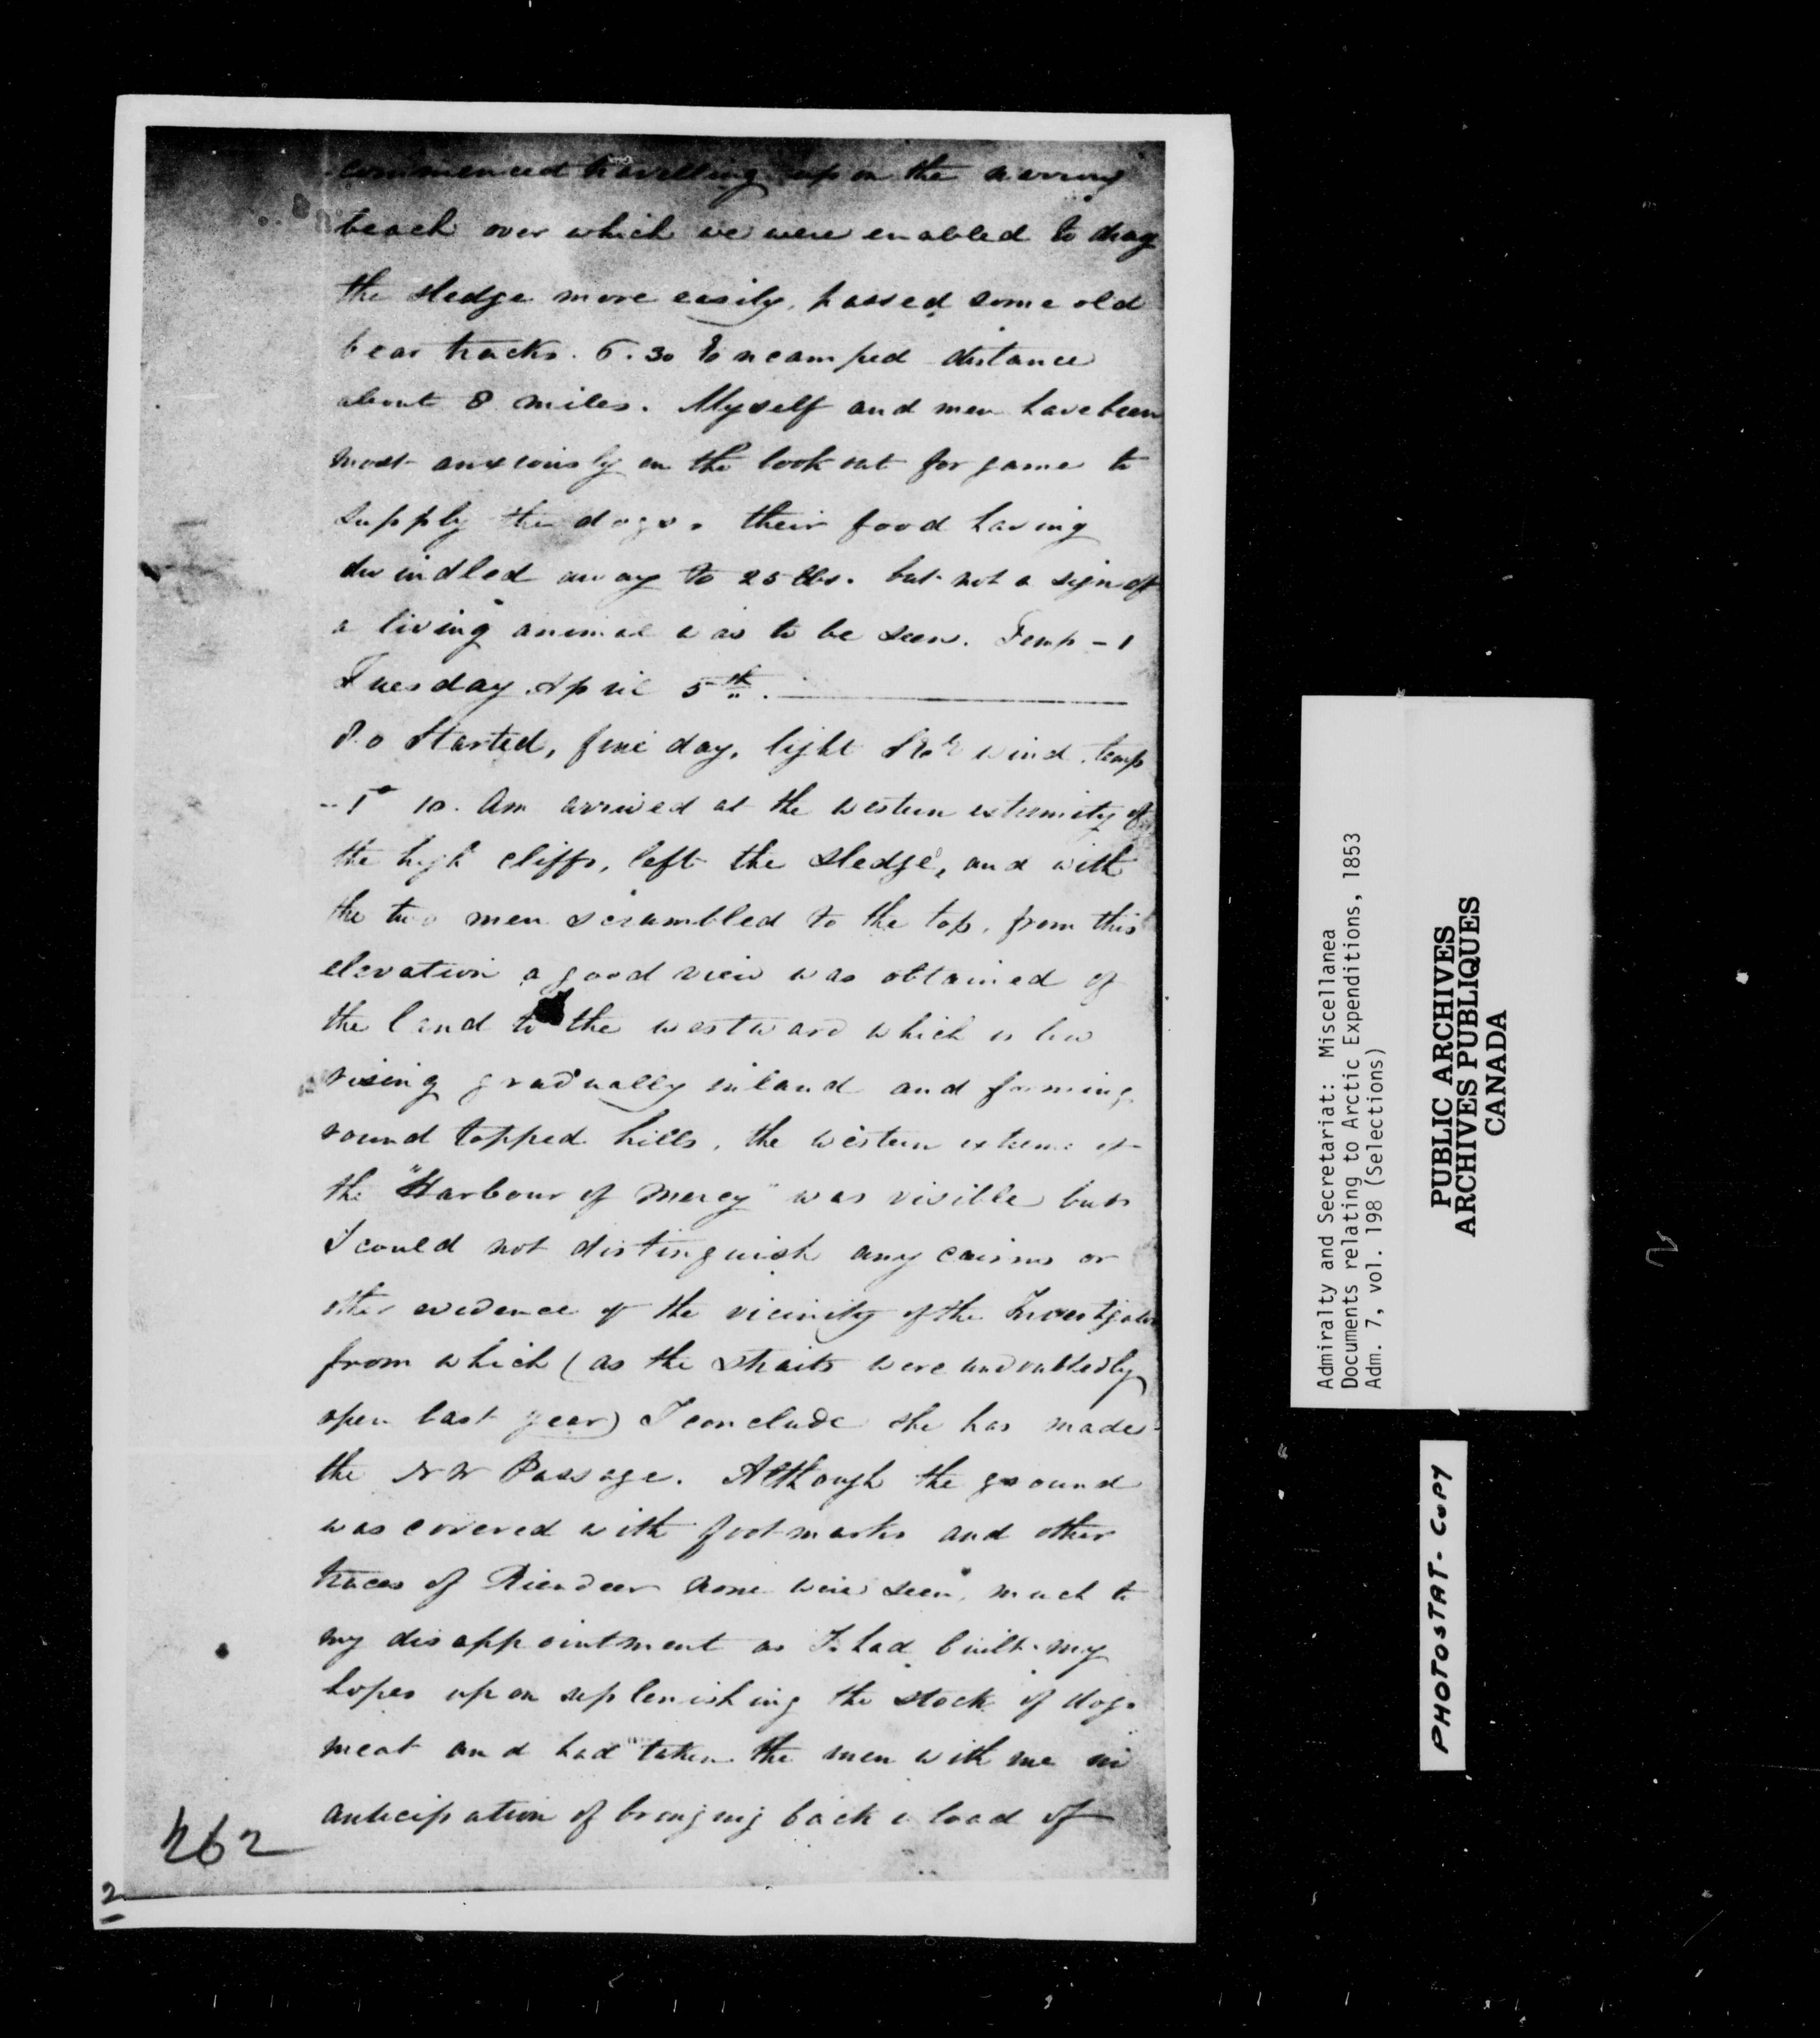 commenced travelling upon the narrow
beach over which we were enabled to drag
the sledge more easily, passed some old
bear tracks. 6.30 Encamped distance
about 8 miles. Myself and men have been
most anxiously on the look out for game to
supply the dogs, their food having
dwindled away to 25 lbs. but not a sign of
a living animal was to be seen. Temp - 1
Tuesday April 5th.
8.0 Started, fine day, light wind. temp
10. Am arrived at the western extremity of
the high cliffs, left the sledge, and with
the two men scrambled to the top, from this
elevation a good view was obtained of
the land to the westward which is low
rising gradually inland and forming
round topped hills, the western extreme of
the "Harbour of Mercy" was visible but
I could not distinguish any cairns or
other evidence of the vicinity of the Investigator
from which (as the straits were undoubtedly
open last year) I conclude she has made
the NW Passage. Although the ground
was covered with footmarks and other
traces of Riendeer none were seen, much to
my disappointment as I had built my
hopes upon replenishing the stock of dogs
meat and had taken the men with me in
anticipation of bringing back a load of
262
2
Admiralty and Secretariat: Miscellanea
Documents relating to Arctic Expenditions, 1853
Adm. 7, vol. 198 (Selections)
PUBLIC ARCHIVES
ARCHIVES PUBLIQUES
CANADA
PHOTOSTAT-COPY